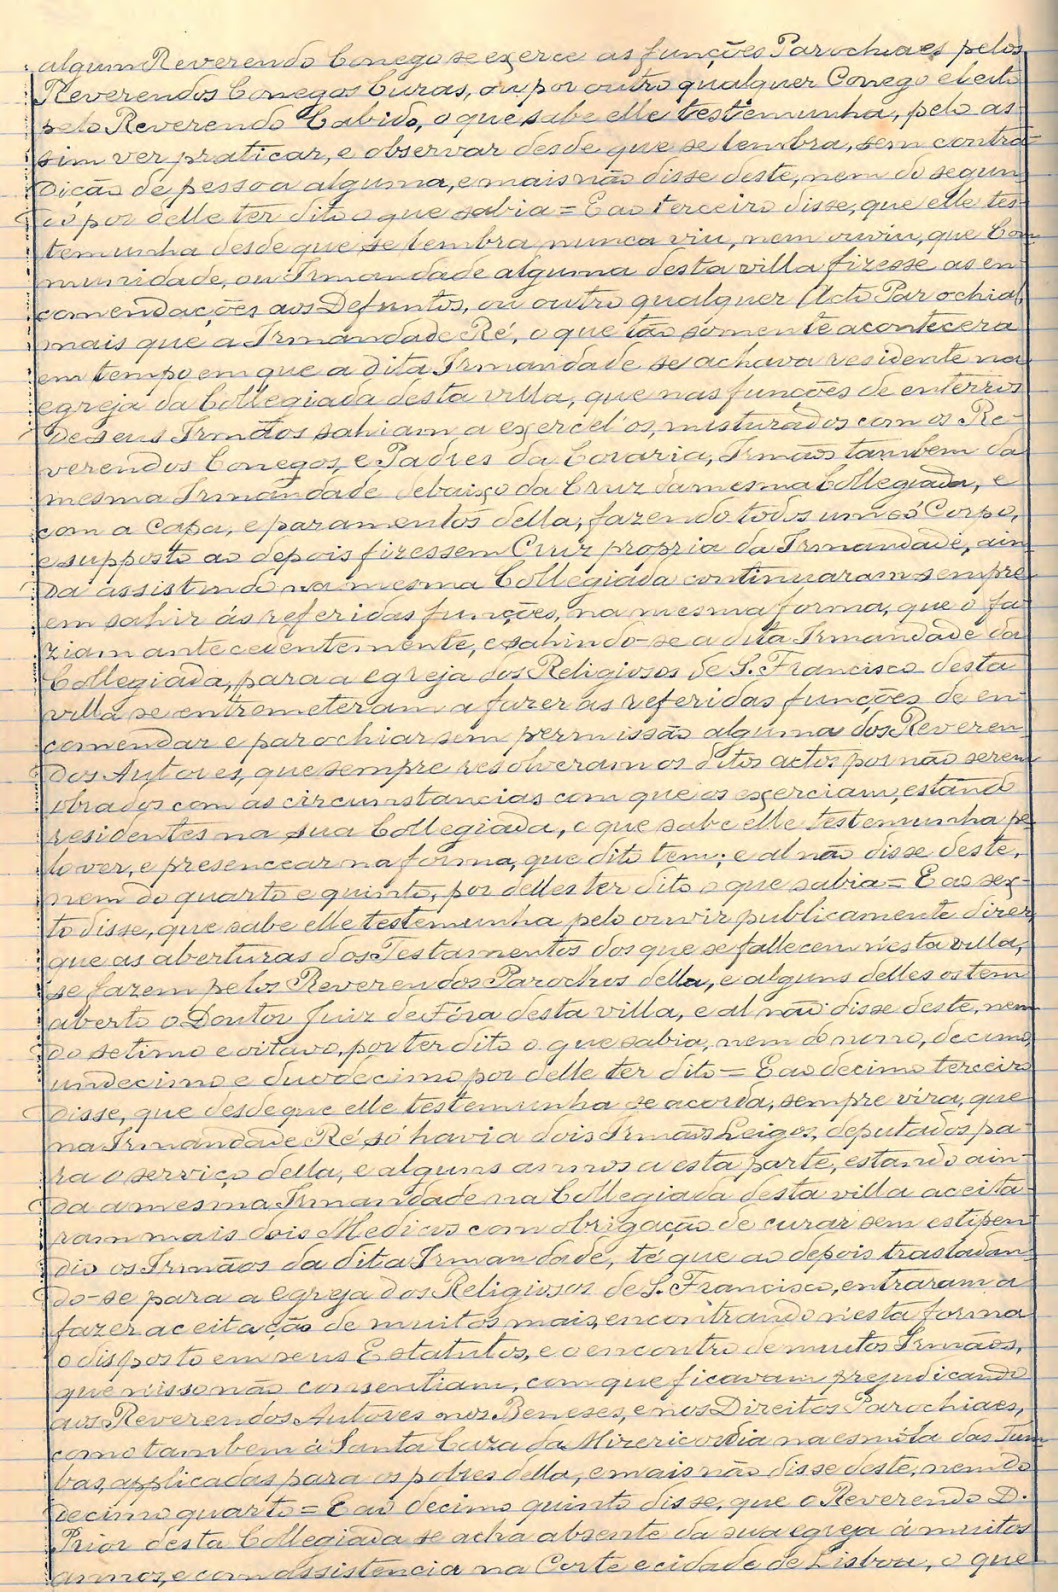 algum Reverendo Conego se exerce as funções Parochiaes pelos
Reverendos Conegos Curas, ou por outro qualquer Conego eleito
pelo Reverendo Cabido, o que sabe elle testemunha, pelo as-
sim ver praticar, e observar desde que se lembra, sem contra-
dição de pessoa alguma, e mais não disse deste, nem do segun-
do por delle ter dito o que sabia = E ao terceiro disse, que elle tes-
temunha desde que se lembra nunca viu, nem ouviu, que Com-
munidade, ou Irmandade alguma desta villa fizesse as en-
comendações aos Defuntos, ou outro qualquer Acto Parochial,
mais que a Irmandade Ré, o que tão sómente acontecera
em tempo em que a dita Irmandade se achava residente na
egreja da Collegiada desta villa, que nas funções de enterros
de seus Irmãos sahiam a exercel'os, misturados com os Re-
verendos Conegos, e Padres da Coraria, Irmãos tambem da
mesma Irmandade debaixo da Cruz da mesma Collegiada, e
com a Capa, e paramentos della, fazendo todos um só Corpo,
e supposto ao depois fizessem Cruz propria da Irmandade, ain-
da assistindo na mesma Collegiada continuaram sempre
em sahir ás referidas funções, na mesma forma, que o fa-
ziam antecedentemente, e sahindo-se a dita Irmandade da
Collegiada, para a egreja dos Religiosos de S. Francisco desta
villa se entrometeram a fazer as referidas funções de en-
comendar e parochiar sem permissão alguma dos Reveren-
dos Autores, que sempre resolveram os ditos actos por não serem
obrados com as circumstancias com que os exerciam, estando
residentes na sua Collegiada, o que sabe elle testemunha pe-
lo ver, e presencear na forma, que dito tem; e al não disse deste,
nem do quarto e quinto, por delles ter dito o que sabia = E ao sex-
to disse, que sabe elle testemunha pelo ouvir publicamente dizer
que as aberturas dos Testamentos dos que se fallecem n'esta villa,
se fazem pelos Reverendos Parochos della, e alguns delles os tem
aberto o Doutor Juiz de Fóra desta villa, e al não disse deste, nem
do setimo e oitavo, por ter dito o que sabia, nem do nono, decimo,
undecimo e duodecimo por delle ter dito = E ao decimo terceiro
disse, que desde que elle testemunha se acorda, sempre vira, que
na Irmandade Ré, só havia dois Irmãos Leigos, deputados pa-
ra o serviço della, e alguns annos a esta parte, estando ain-
da a mesma Irmandade na Collegiada desta villa aceita-
ram mais dois Medicos com obrigação de curar sem estipen-
dio os Irmãos da dita Irmandade, té que ao depois trasladan-
do-se para a egreja dos Religiosos de S. Francisco, entraram a
fazer aceitação de muitos mais, encontrando n'esta forma
o disposto em seus Estatutos, e o encontro de muitos Irmãos,
que n'isso não consentiam, com que ficavam prejudicando
aos Reverendos Autores nos Beneses, e nos Direitos Parochiaes,
como tambem á Santa Caza da Mizericordia na esmola das Tum-
bas, applicadas para os pobres della, e mais não disse deste, nem do
decimo quarto = E ao decimo quinto disse, que o Reverendo D.
Prior desta Collegiada se acha absente da sua egreja á muitos
annos, e com assistencia na Corte e cidade de Lisboa, o que